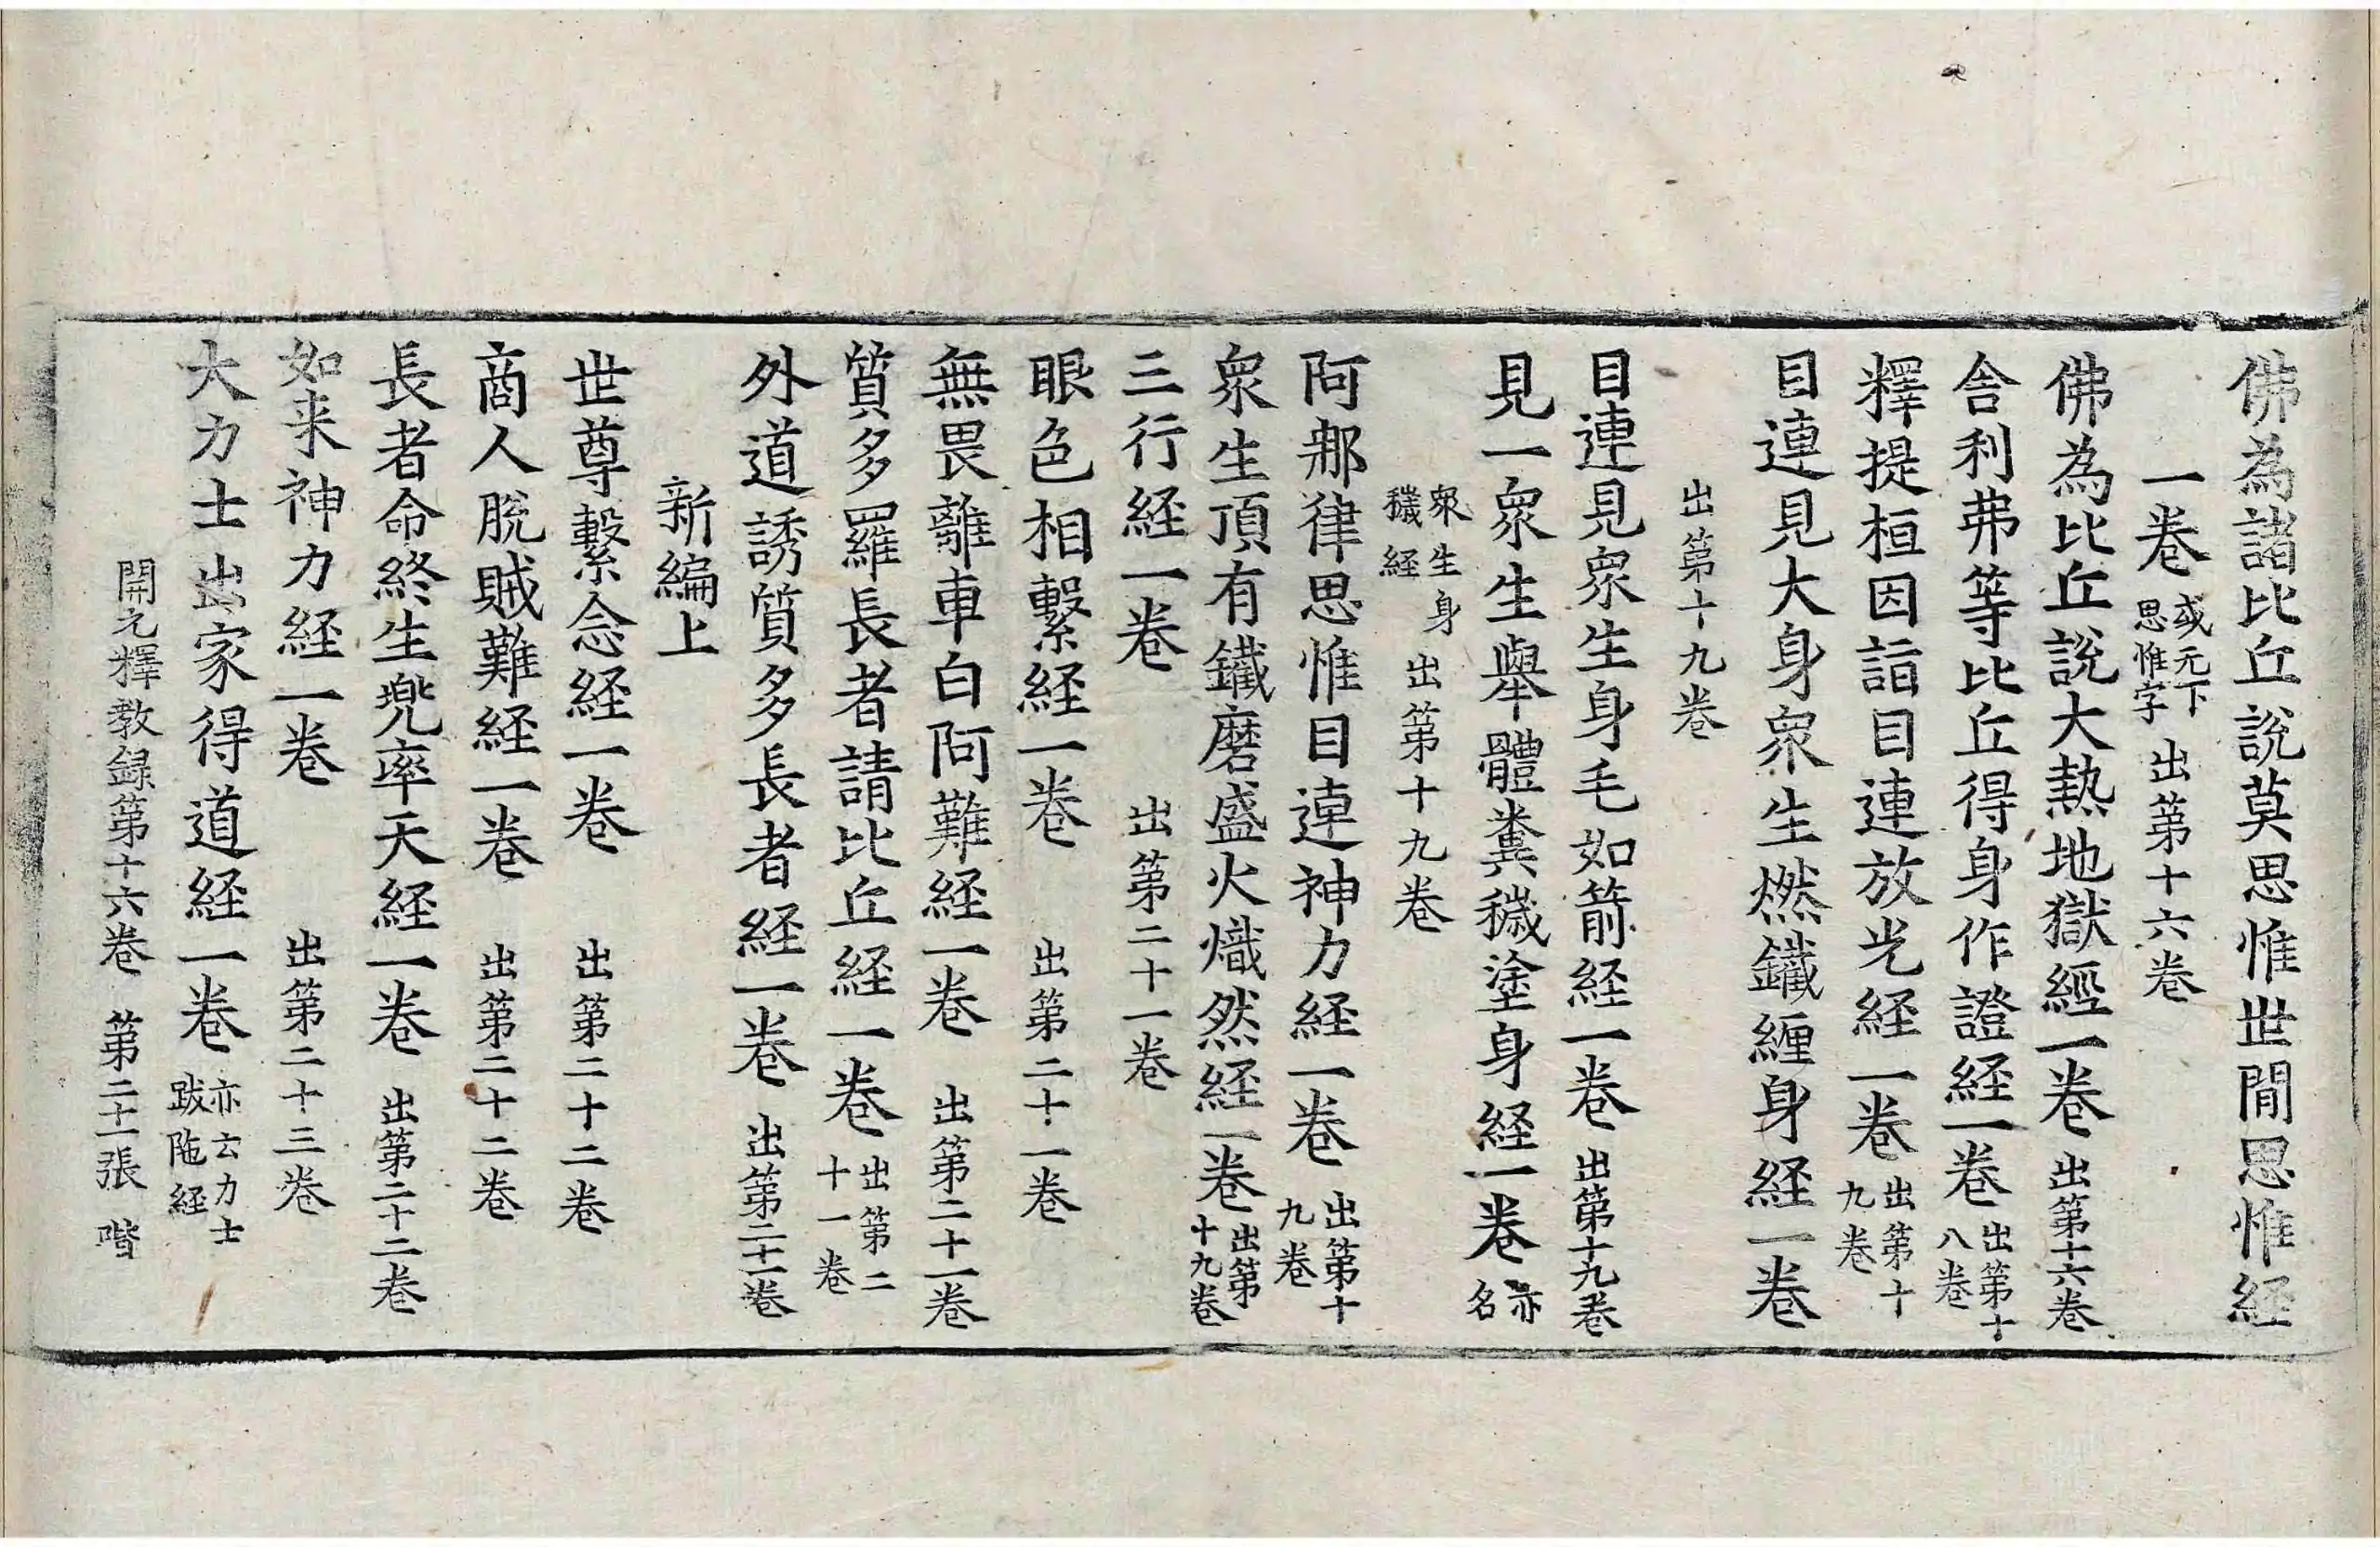 佛為諸比丘說莫思惟世間思惟経
一卷 或无下思惟字 出第十六卷
佛為比丘說大熱地獄經一卷 出第十六卷
舍利弗等比丘得身作證経一卷 出第十八卷
釋提桓因詣目連放光経一卷 出第十九卷
目連見大身衆生燃鐵纏身経一卷
出第十九卷
目連見衆生身毛如箭経一卷 出第十九卷
見一衆生舉體糞穢塗身経一卷 亦名
衆生身穢経 出第十九卷
阿那律思惟目連神力経一卷 出第十九卷
衆生頂有鐵磨盛火熾然経一卷 出第十九卷
三行経一卷 出第二十一卷
眼色相繫経一卷 出第二十一卷
無畏離車白阿難経一卷 出第二十一卷
質多羅長者請比丘経一卷 出第二十一卷
外道誘質多長者経一卷 出第二十一卷
新編上
世尊繫念経一卷 出第二十二卷
商人脫賊難経一卷 出第二十二卷
長者命終生兜率天経一卷 出第二十二卷
如来神力経一卷 出第二十三卷
大力士出家得道経一卷 亦云力士跋陁経
開元釋教録第十六卷 第二十一張 階